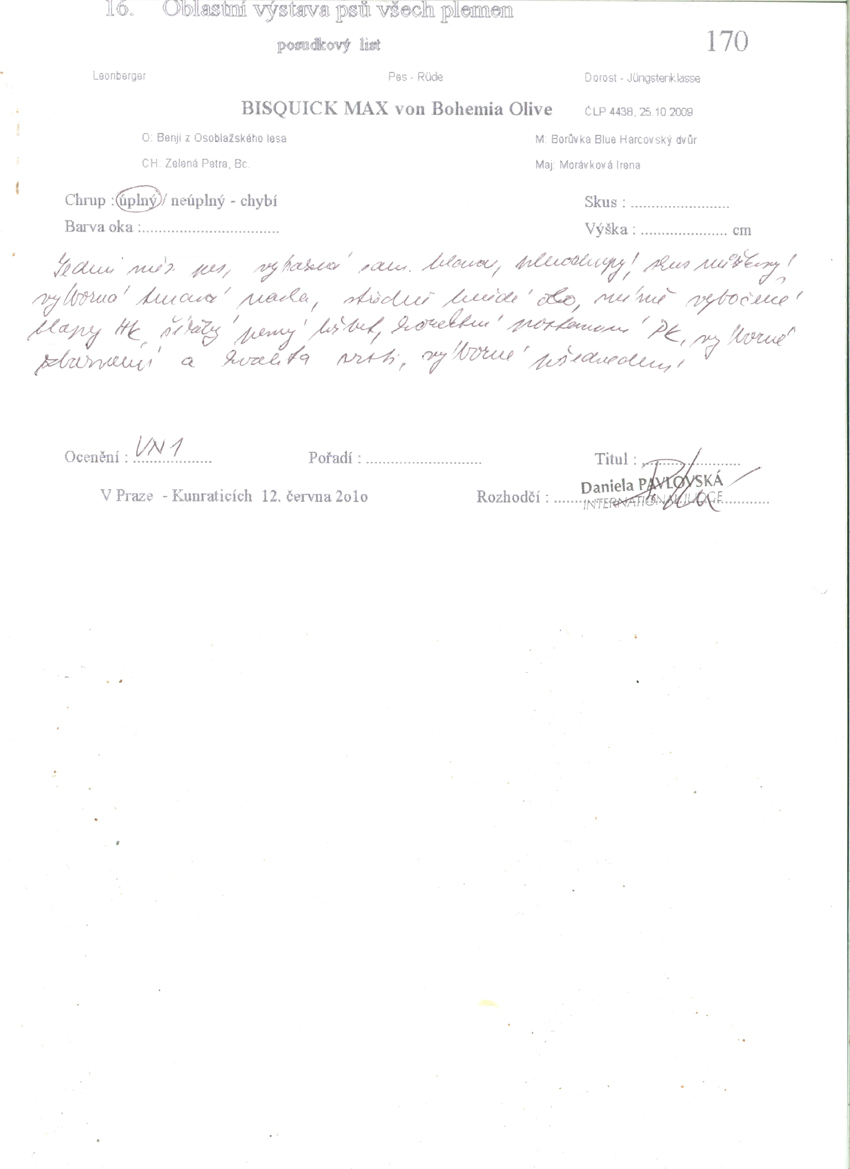 16. Oblastní výstava psů všech plemen
posudkový list 170
Leonberger Pes - Rüde Dorost - Jüngstenklasse
BISQUICK MAX von Bohemia Olive ČLP 4438, 25.10.2009
O: Benji z Osoblažského lesa M: Borůvka Blue Harcovský dvůr
CH: Zelená Petra, Bc. Maj: Morávková Irena
Chrup : úplný / neúplný - chybí Skus : ........................
Barva oka :................................ Výška : ..................... cm
pes, sam. hlava, plnochrupý, skus nůžkový,
výborná tmavá maska, středně hnědé oko, mírně vybočené
tlapy HK, pevný hřbet, korektní PK, výborné
zbarvení a kvalita srsti, výborné předvedení
Ocenění : VN 1 Pořadí : ............................ Titul : ........................
V Praze - Kunraticích 12. června 2010 Rozhodčí : Daniela PAVLOVSKÁ
INTERNATIONAL JUDGE